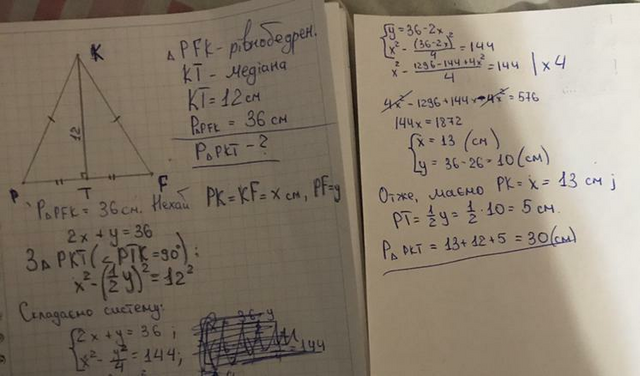 K
12
P
T
F
Δ PFK - рівнобедрен.
KT - медіана
KT = 12 см
PΔPFK = 36 см
PΔPKT - ?
PΔPFK = 36 см. Нехай PK = KF = x см, PF = y
2x + y = 36
З Δ PKT (∠PTK = 90°);
x² - (1/2 y)² = 12²
Складаємо систему:
{2x + y = 36;
{x² - y²/4 = 144;
36 - y
144
{y = 36 - 2x
{x² - (36-2x)²/4 = 144
x² - 1296 - 144 + 4x²/4 = 144 | x 4
4x² - 1296 + 144x - 4x² = 576
144x = 1872
{x = 13 (см)
{y = 36 - 26 = 10 (см)
Отже, маємо PK = x = 13 см;
PT = 1/2 y = 1/2 · 10 = 5 см.
PΔ PKT = 13 + 12 + 5 = 30 (см)